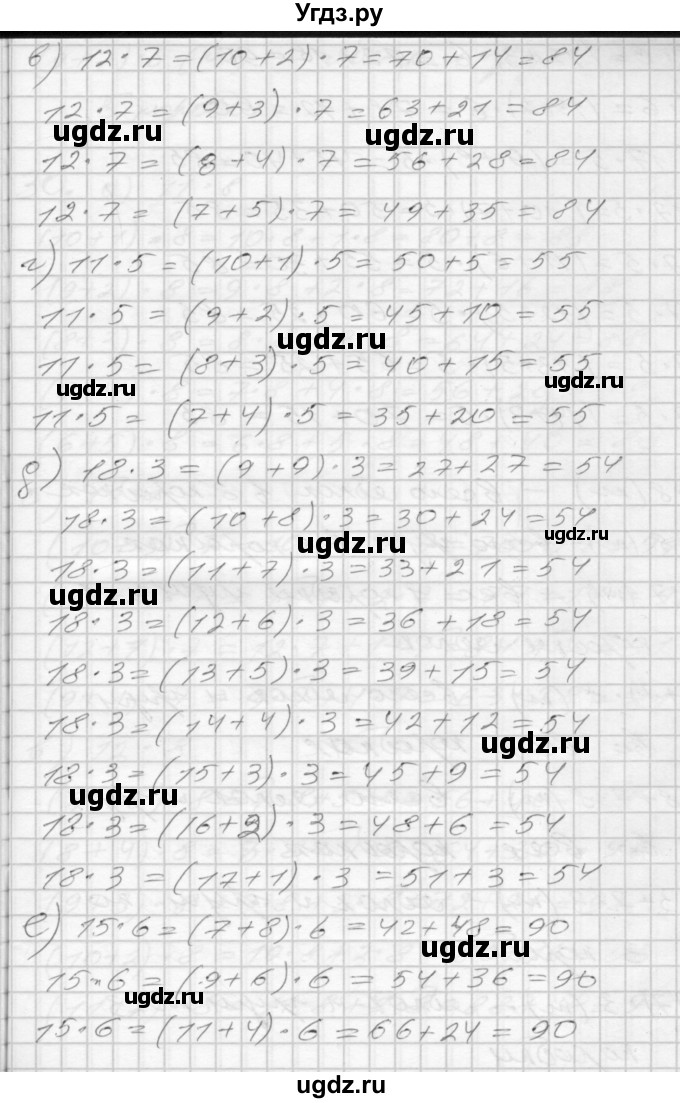 Угдз.ру
в) 12·7=(10+2)·7=70+14=84
12·7=(9+3)·7=63+21=84
ugdz.ru ugdz.ru
12·7=(8+4)·7=56+28=84
12·7=(7+5)·7=49+35=84
г) 11·5=(10+1)·5=50+5=55
11·5=(9+2)·5=45+10=55
ugdz.ru
11·5=(8+3)·5=40+15=55
ugdz.ru ugdz.ru
11·5=(7+4)·5=35+20=55
д) 18·3=(9+9)·3=27+27=54
18·3=(10+8)·3=30+24=54
ugdz.ru ugdz.ru
18·3=(11+7)·3=33+21=54
ugdz.ru
18·3=(12+6)·3=36+18=54
18·3=(13+5)·3=39+15=54
18·3=(14+4)·3=42+12=54
ugdz.ru
18·3=(15+3)·3=45+9=54
ugdz.ru
18·3=(16+2)·3=48+6=54
18·3=(17+1)·3=51+3=54
е) 15·6=(7+8)·6=42+48=90
ugdz.ru
15·6=(9+6)·6=54+36=90
ugdz.ru
15·6=(11+4)·6=66+24=90
ugdz.ru